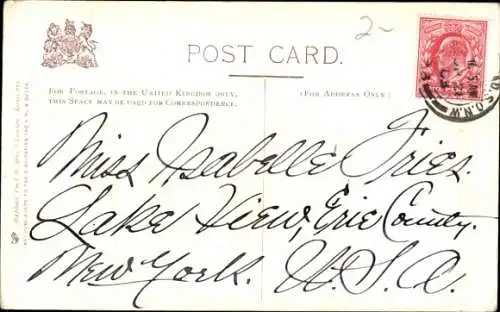 2-
POST CARD.
FOR POSTAGE, IN THE UNITED KINGDOM ONLY,
THIS SPACE MAY BE USED FOR CORRESPONDENCE.
(FOR ADDRESS ONLY.)
Miss Isabelle Fries.
Lake View, Erie County.
New York. U.S.A.